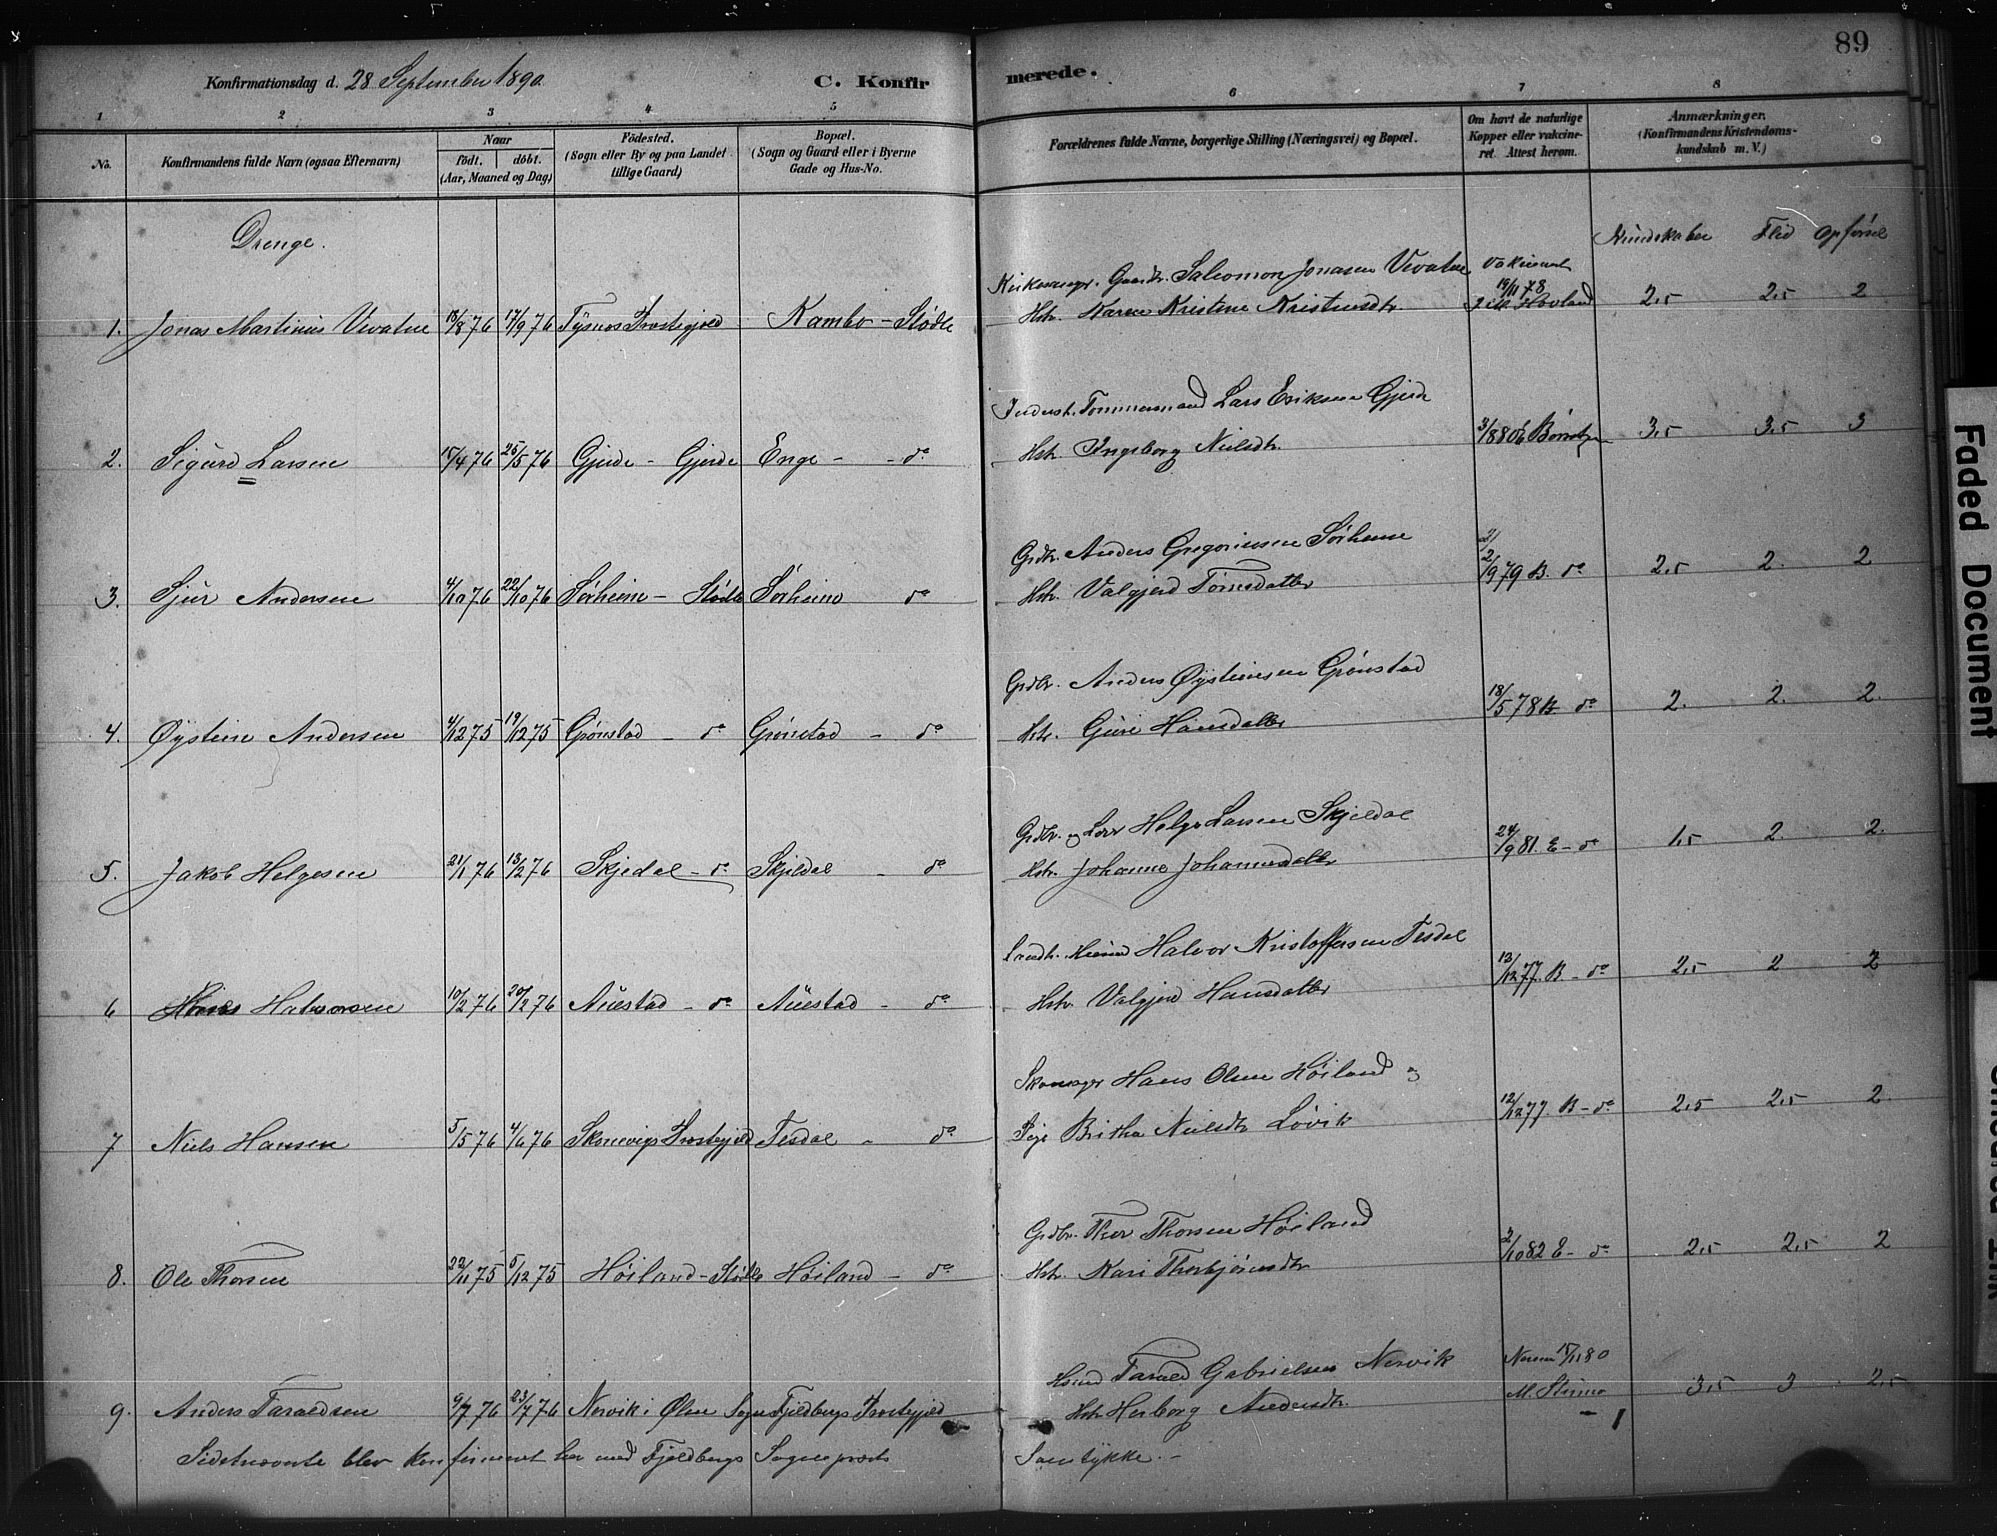 89
Konfirmationsdag d. 28 September 1890. C. Konfirmerede.
1 2 3 4 5 6 7 8
No. Konfirmandens fulde Navn (ogsaa Efternavn) Naar født. døbt. (Aar, Maaned og Dag) Fødested. (Sogn eller By og paa Landet tillige Gaard) Bopæl. (Sogn og Gaard eller i Byerne Gade og Hus-No. Forældrenes fulde Navne, borgerlige Stilling (Næringsvei) og Bopæl. Om havt de naturlige Kopper eller vakcineret. Attest herom. Anmærkninger. (Konfirmandens Kristendomskundskab m. V.)
Drenge. Kundskaber Flid Opførsel
Salomon Jonasen Vevatne
1. Jonas Martinius Vevatne 18/8 76 17/9 76 Tysnes Prestegjeld Kambo - Stødle Hstr. Karen Kristine Kristensdtr. 19/11 78 Hovland 2,5 2,5 2
Inderst. Tømmermand Lars Eriksen Gjerde
2. Sigurd Larsen 15/4 76 25/5 76 Gjerde - Gjerde Enge - do Hstr. Ingeborg Nielsdtr. 3/8 80 3,5 3,5 3
Grdbr. Anders Gregoriussen Sørheim
3. Sjur Andersen 4/10 76 22/10 76 Sørheim - Stødle Sørheim do Hstr. Valgjerd Tørresdatter 2/9 79 B. do 2,5 2. 2
Grdbr. Anders Øysteinsen Grønstad
4. Øystein Andersen 4/12 75 19/12 75 Grønstad - do Grønstad - do Hstr. Guri Hansdatter 18/5 78 B do 2. 2. 2.
Grdbr. og Helge Larsen Skjeldal
5. Jakob Helgesen 21/1 76 13/2 76 Skjedal - do Skjeldal - do Hstr. Johanne Johannesdatter 24/9 81. E - do 1,5 2. 2.
Halvor Kristoffersen Tesdal
6 Halvorsen 10/2 76 20/2 76 Auestad - do Auestad - do Hstr. Valgjerd Hansdatter 13/12 77. B - do 2,5 2 2
Hans Olsen Høiland og
7 Niels Hansen 5/5 76 4/6 76 Skonevigs Prestegjeld Tesdal - do Pige Britha Nielsdtr Løvik 12/12 77. B - do 2,5 2,5 2
Grdbr. Thor Thorsen Høiland
8. Ole Thorsen 22/11 75 5/12 75 Høiland - Stødle Høiland - do Hstr. Kari Thorbjørnsdtr 2/10 82 E - do 2,5 2,5 2
Hsmd Tarald Gabrielsen Nervik
9. Anders Taraldsen 9/7 76 23/7 76 Nervik i Ølen Sogn Fjeldbergs Prestegjeld Hstr Herborg Andersdtr. 15/11 80 3,5 3 2,5
Sidstnævnte blev konfirmeret her med Fjeldbergs Sogneprests Samtykke. -
Faded Document